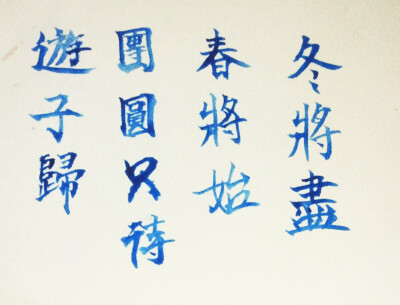 冬將盡
春將始
團圓只待
遊子歸